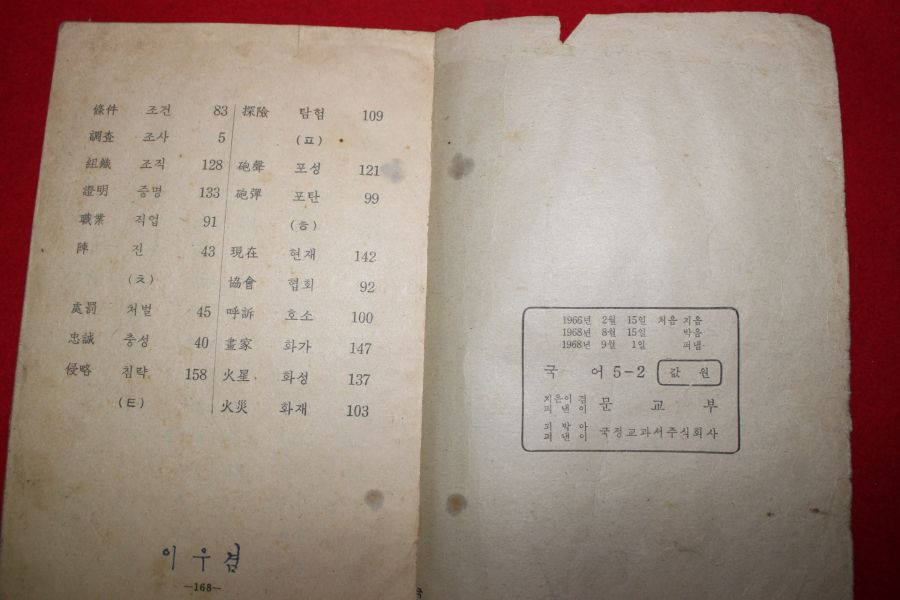 條件 조건 83
調査 조사 5
組織 조직 128
證明 증명 133
職業 직업 91
陣 진 43
(ㅊ)
處罰 처벌 45
忠誠 충성 40
侵略 침략 158
(ㅌ)
探險 탐험 109
(ㅍ)
砲聲 포성 121
砲彈 포탄 99
(ㅎ)
現在 현재 142
協會 협회 92
呼訴 호소 100
畫家 화가 147
火星 화성 137
火災 화재 103
이우겸
—168—
1966년 2월 15일 처음 지음
1968년 8월 15일 박음
1968년 9월 1일 펴냄
국 어 5-2 값 원
지은이 겸
펴 낸 이 문 교 부
되 박 아
펴 낸 이 국정교과서주식회사